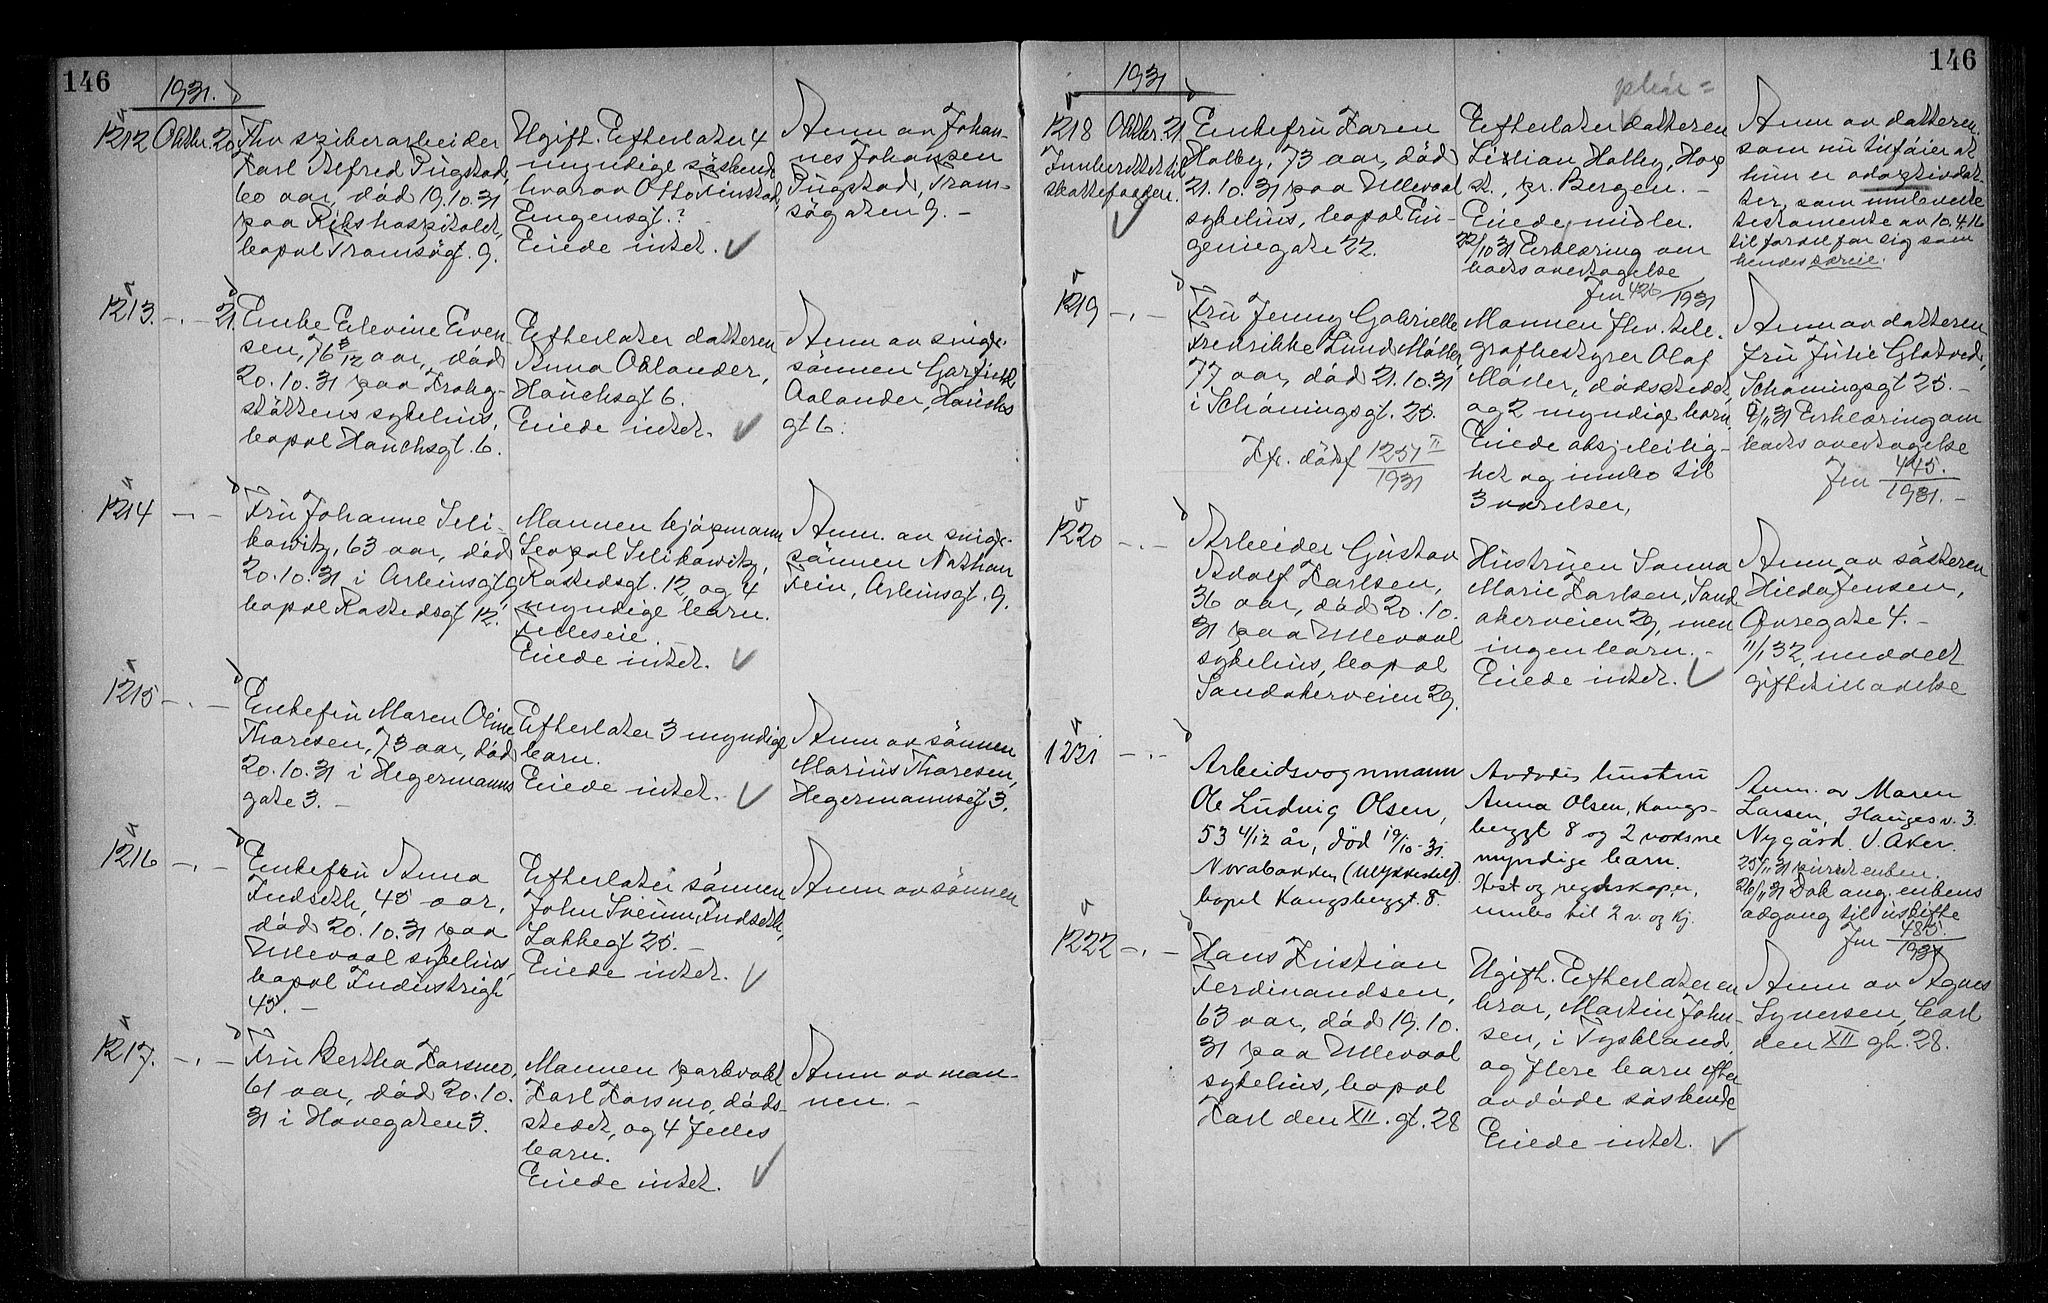 146
1931.
1212 Oktbr. 20.
Fhv spikerarbeider
Karl Alfred Tugstad,
60 aar, död 19.10.31
paa Rikshospitalet,
bopæl Tromsögt. 9.
Ugift. Efterlater 4
myndige söskend
hvorav Otto
Engensgt.?
Eiede intet.
Anm av Johan-
nes Johansen
Tugstad, Trom-
sögaten 9. -
1213. -.- 21.
Enke Elevine Even-
sen, 76 3/12 aar, död
20.10.31 paa Krohg-
støttens sykehus,
bopæl Hauchsgt. 6.
Efterlater datteren
Anna Oslander,
Hauchsgt 6.
Eiede intet.
Anm av sviger-
sönnen Garfield
Oslander, Hauchs
gt 6.
1214 -.-
Fru Johanne Seli-
kowitz, 63 aar, död
20.10.31 i Arbinsgt 9,
bopæl Rostedsgt 12.
Mannen kjöpmann
Leopol Selikowitz,
Rostedsgt. 12, og 4
myndige barn.
Felleseie.
Eiede intet.
Anm. av sviger-
sönnen Nathan
Fein, Arbinsgt. 9.
1215 -.-
Enkefru Maren Oline
Thoresen, 73 aar, död
20.10.31 i Hegermanns
gate 3. -
Efterlater 3 myndige
barn.
Eiede intet.
Anm av sönnen
Marius Thoresen,
Hegermannsgt 3.
1216 -.-
Enkefru Anna
Indseth, 45 aar,
död 20.10.31 paa
Ullevaal sykehus,
bopæl Industrigt
45. -
Efterlater sönnen
John Sveinn Indseth,
Lakkegt 25. -
Eiede intet.
Anm av sönnen
1217. -.-
Fru Bertha Korsmo,
61 aar, död 20.10.
31 i Hovegaten 3.
Mannen parkvakt
Karl Korsmo, döds-
stedet, og 4 felles
barn.
Eiede intet.
Anm av man-
nen. -
146
1931
1218 Oktbr. 21.
Innberettet til
skattefogden.
Enkefru Karen
Holby, 73 aar, död
21.10.31 paa Ullevaal
sykehus, bopæl Eu-
geniegate 22.
Efterlater datteren
Lillian Holby, Hop
st., pr. Bergen. -
Eiede midler.
22/10 31 Erklæring om
boets overtagelse
Jnr 426/1931
Anm av datteren
som nu tilföier at
hun er adoptivdat-
ter, som innleverte
testamente av 10.4.16
til fordel for sig som
hendes særeie.
1219 -.-
Fru Jenny Gabrielle
Fredrikke Lund Møller,
77 aar, död 21.10.31
i Schöningsgt. 25.
Kfr. dödsf 1251 II/1931
Mannen fhv. tele-
grafbestyrer Olaf
Möller, dödsstedet,
og 2 myndige barn
Eiede aksjeleilig-
het og innbo til
3 værelser.
Anm av datteren
fru Julie Glatved,
Schöningsgt 25. -
7/11 31 Erklæring om
boets overtagelse
Jnr 445./1931. -
1220 -.-
Arbeider Gustav
Adolf Karlsen,
36 aar, död 20.10.
31 paa Ullevaal
sykehus, bopæl
Sandakerveien 29.
Hustruen Sanna
Marie Karlsen, Sand
akerveien 29, men
ingen barn. -
Eiede intet.
Anm av søsteren
Hilda Jensen,
Övregate 4. -
11/1 32, meddelt
giftetillatelse
1221 -.-
Arbeidsvognmann
Ole Ludvig Olsen,
53 4/12 år, död 19/10-31.
bopæl Kongsberggt. 8.
Avdödes hustru
Anna Olsen, Kongs-
berggt 8 og 2 voksne
myndige barn.
Hest og redskaper,
innbo til 2 v. og kj.
Anm. av Maren
Larsen, Haugesv. 3
Nygård. V. Aker.
enken.
26/11 31 Dok ang. enkens
adgang til uskifte
Jnr 485./1931
1222 -.-
Hans Kristian
Ferdinandsen,
63 aar, död 19.10.
31 paa Ullevaal
sykehus, bopæl
Karl den XII. gt. 28
Ugift. Efterlater en
bror, Martin John-
sen, i Tyskland,
og flere barn efter
avdöde söskende
Eiede intet.
Anm av Agnes
Syversen, Carl
den XII gt. 28.